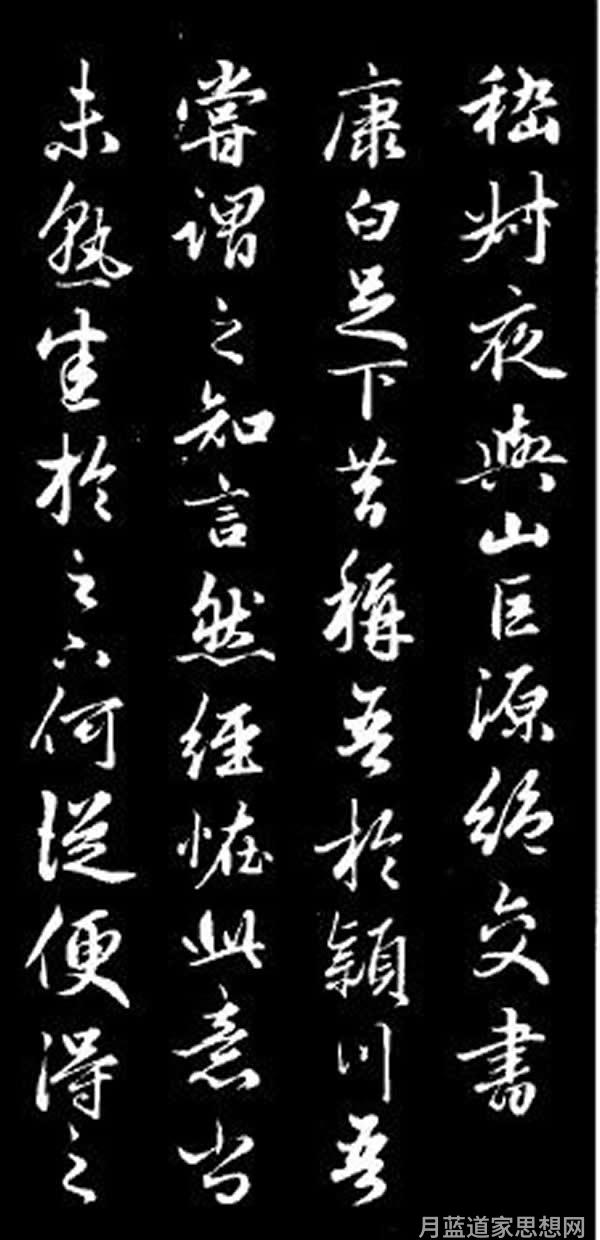 嵇叔夜與山巨源絕交書
康白足下昔稱吾於潁川吾
嘗謂之知言然經怪此意尚
未熟悉於足下何從便得之
月蓝道家思想网